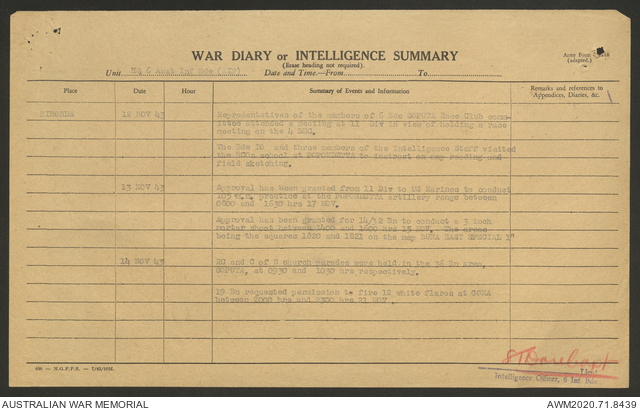 WAR DIARY or INTELLIGENCE SUMMARY
(Erase heading not required).
Army Form
(adapted.)
Unit HQ 6 Aust Inf Bde (AIF) Date and Time.—From To
Place Date Hour Summary of Events and Information Remarks and references to Appendices, Diaries, &c.
12 NOV 43 Representatives of the members of 6 Bde SOPUTA Race Club comm-
ittee attended a meeting at 11 Div in view of holding a race
meeting on the 4 DEC.
The Bde IO and three members of the Intelligence Staff visited
the school at POPONDETTA to instruct on map reading and
field sketching.
13 NOV 43 Approval has been granted from 11 Div to US Marines to conduct
105 m.m. practice at the POPONDETTA artillery range between
0800 and 1630 hrs 17 NOV.
Approval has been granted for 14/32 Bn to conduct a 3 inch
mortar shoot between 1400 and 1600 hrs 15 NOV. The areas
being the squares 1820 and 1821 on the map BUNA EAST SPECIAL 1"
14 NOV 43 RC and C of E church parades were held in the 36 Bn area,
SOPUTA, at 0930 and 1030 hrs respectively.
19 Bn requested permission to fire 12 white flares at GONA
between 2000 hrs and 2300 hrs 21 NOV.
Lieut
Intelligence Officer, 6 Inf Bde
AUSTRALIAN WAR MEMORIAL
AWM2020.71.8439